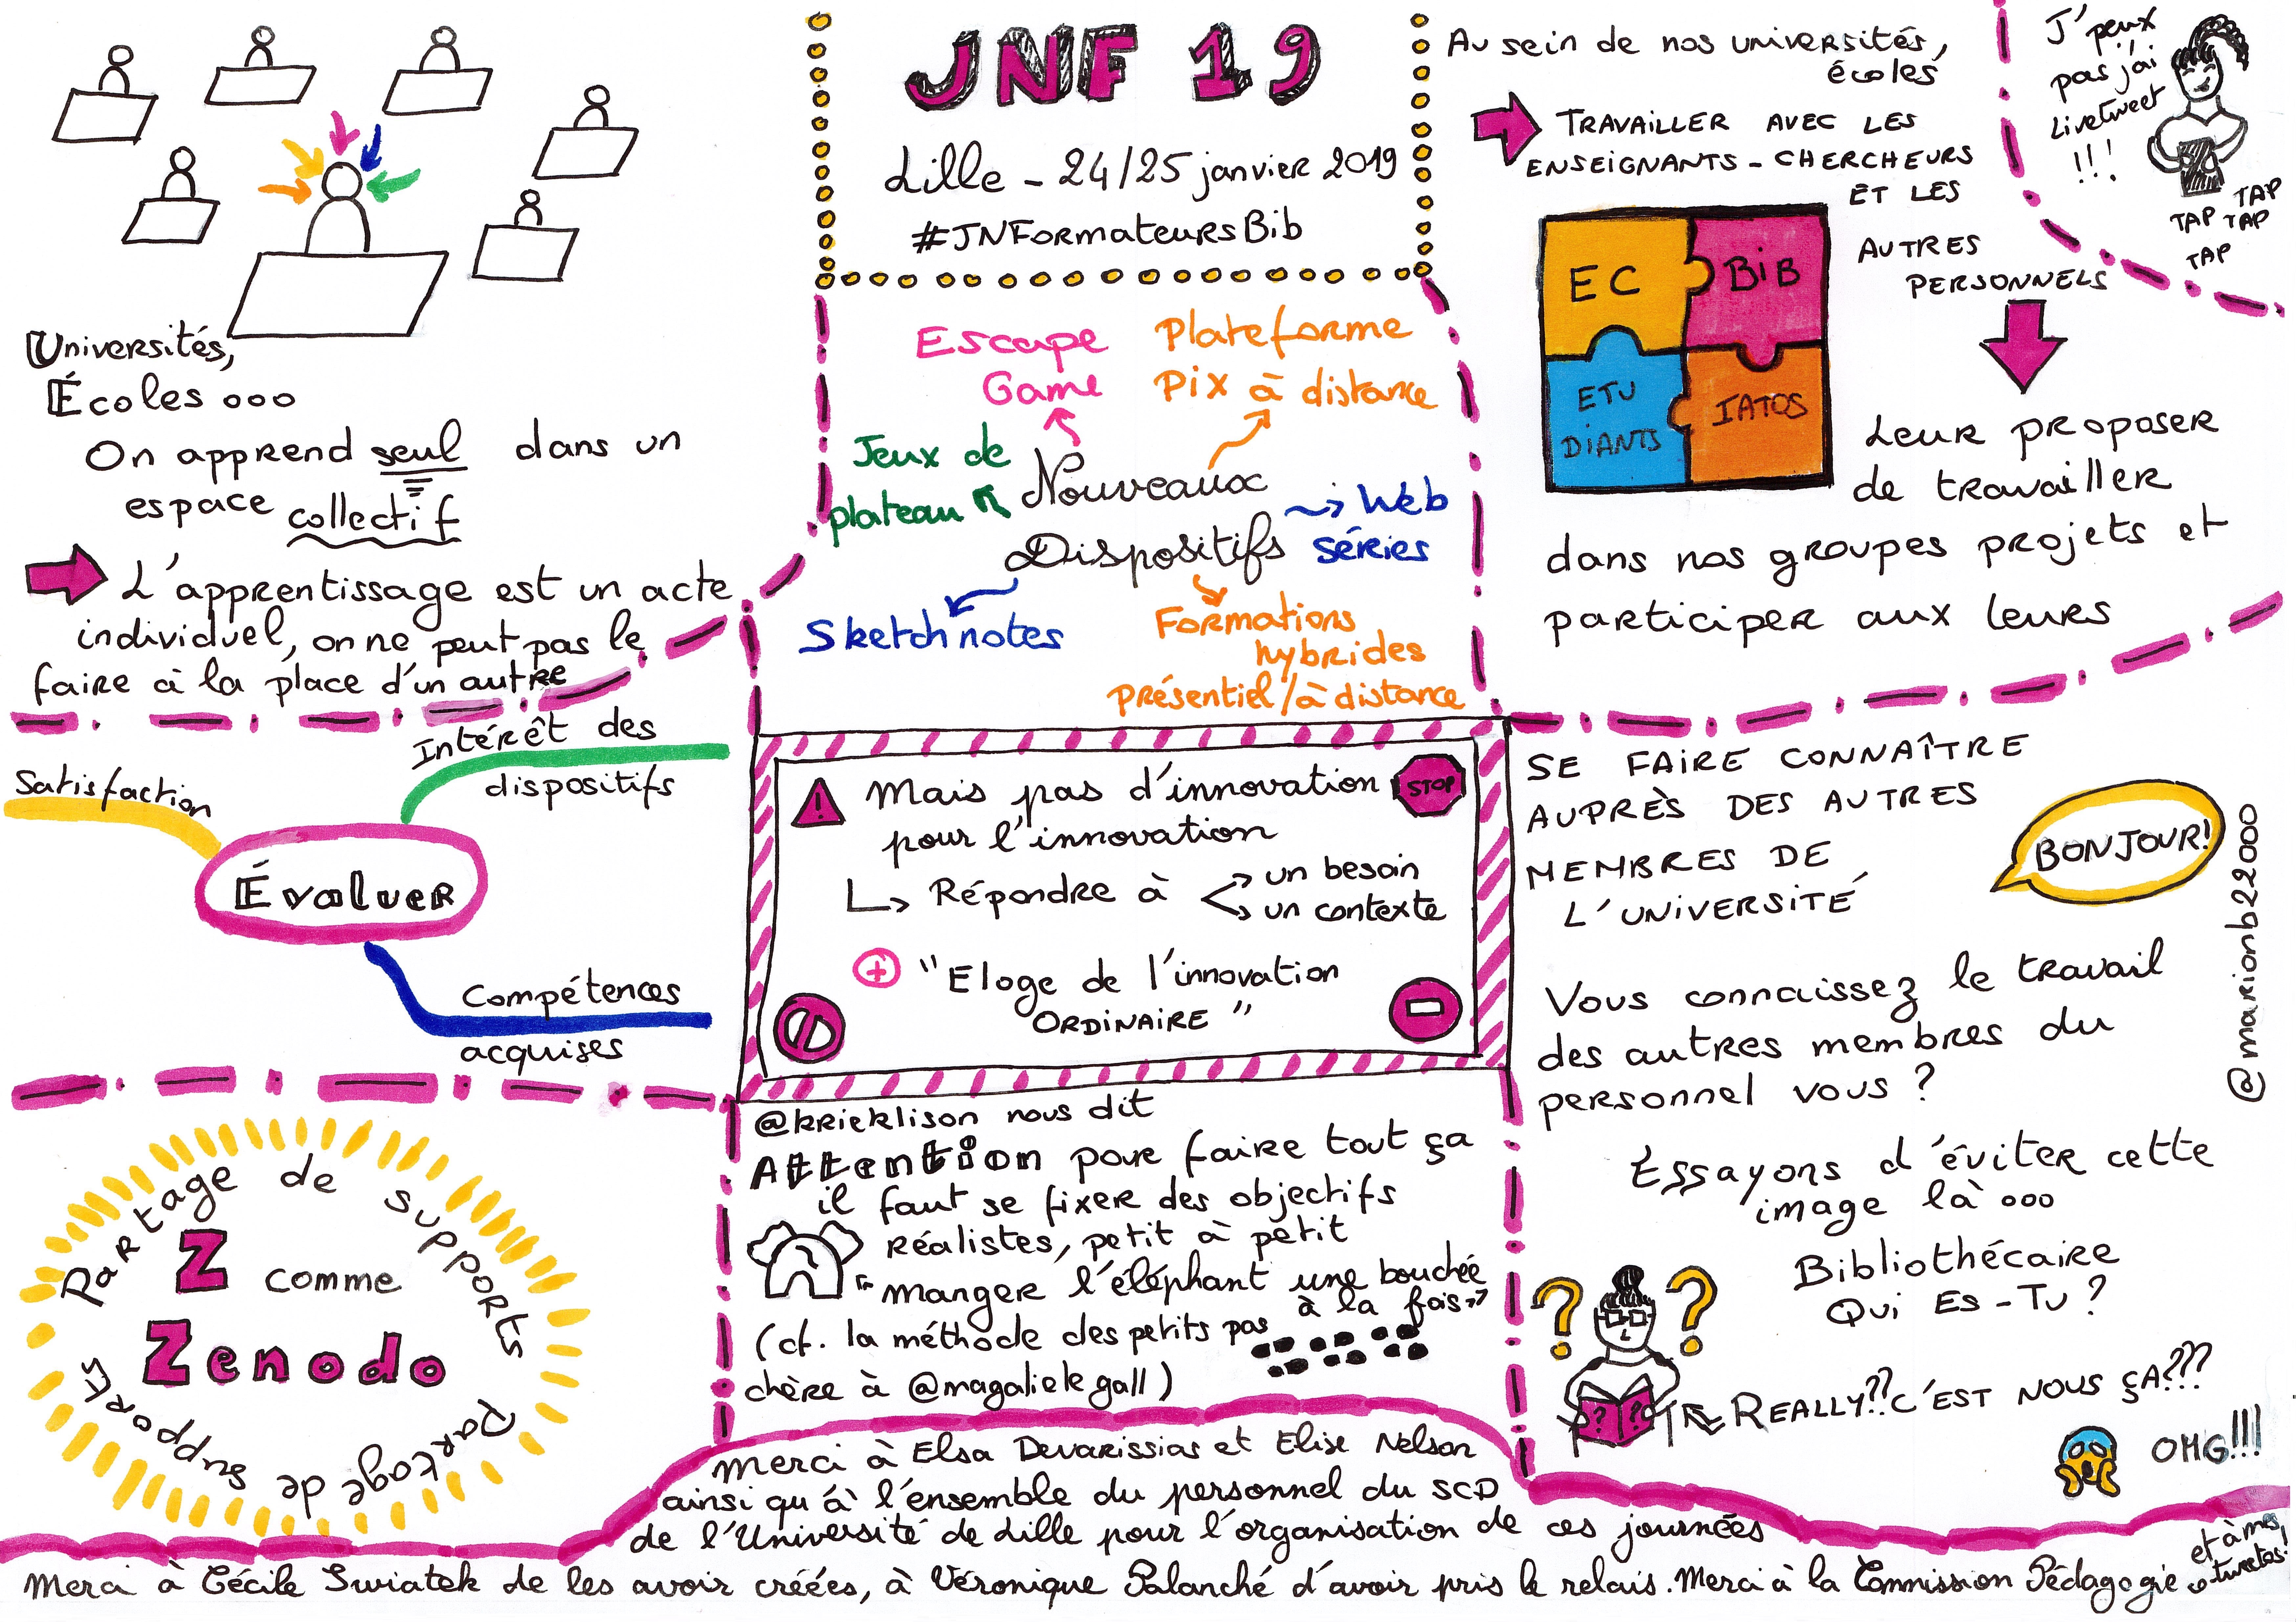 JNF 19
Lille - 24/25 janvier 2019
#JNFormateursBib
Universités,
Écoles ooo
On apprend seul dans un
espace collectif
L'apprentissage est un acte
individuel, on ne peut pas le
faire à la place d'un autre
Escape
Game
Plateforme
Pix à distance
Jeux de
plateau
Nouveaux
Dispositifs
Web
séries
Sketchnotes
Formations
hybrides
présentiel/à distance
Au sein de nos universités,
écoles
TRAVAILLER AVEC LES
ENSEIGNANTS-CHERCHEURS
ET LES
AUTRES
PERSONNELS
EC
BiB
ETU
DIANTS
IATOS
Leur proposer
de travailler
dans nos groupes projets et
participer aux leurs
J'peux
pas j'ai
Livetweet
!!!
TAP TAP
TAP
TAP
Satisfaction
Intérêt des
dispositifs
Évaluer
Compétences
acquises
Mais pas d'innovation
pour l'innovation
STOP
Répondre à
un besoin
un contexte
+ "Eloge de l'innovation
ORDINAIRE"
SE FAIRE CONNAÎTRE
AUPRÈS DES AUTRES
MEMBRES DE
L'UNIVERSITÉ
BONJOUR!
@marionb22000
Vous connaissez le travail
des autres membres du
personnel vous ?
Essayons d'éviter cette
image là ooo
Bibliothécaire
Qui Es-Tu ?
? ?
? ?
REALLY?? C'EST NOUS ÇA???
OMG!!!
Partage de supports
Z comme
Zenodo
Partage de supports
@kricklison nous dit
Attention pour faire tout ça
il faut se fixer des objectifs
réalistes, petit à petit
"manger l'éléphant une bouchée
à la fois"
(cf. la méthode des petits pas
chère à @magalielegall)
Merci à Elsa Devarissias et Elise Nelson
ainsi qu'à l'ensemble du personnel du SCD
de l'Université de Lille pour l'organisation de ces journées
Merci à Cécile Swiatek de les avoir créées, à Véronique Palanché d'avoir pris le relais. Merci à la Commission Pédagogie
et à mes